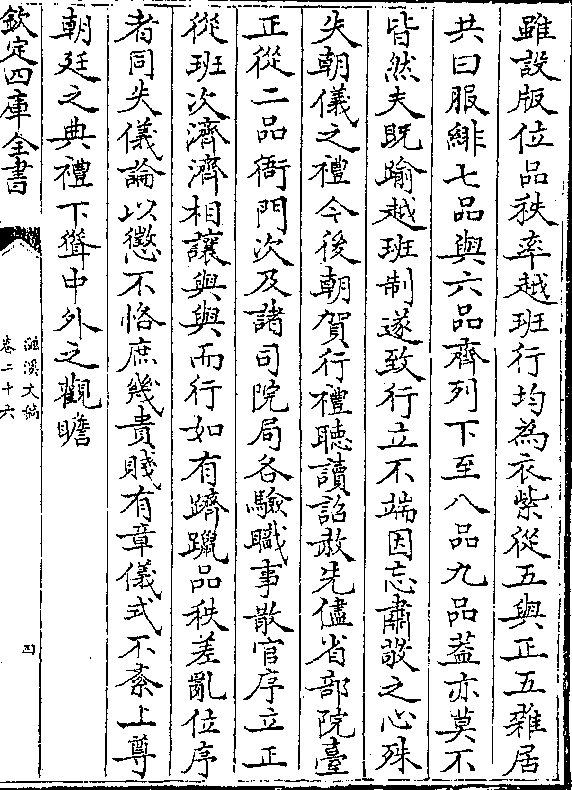 雖設版位品秩率越班行均為衣紫從五與正五雜居
共曰服緋七品與六品齊列下至八品九品蓋亦莫不
皆然夫既踰越班制遂致行立不端因忘肅敬之心殊
失朝儀之禮今後朝賀行禮聽讀詔赦先儘省部院臺
正從二品衙門次及諸司院局各驗職事散官序立正
從班次濟濟相讓與與而行如有躋躐品秩差亂位序
者同失儀論以懲不恪庶幾貴賤有章儀式不紊上尊
朝廷之典禮下聳中外之觀瞻
欽定四庫全書
滋溪文稿
卷二十六
四